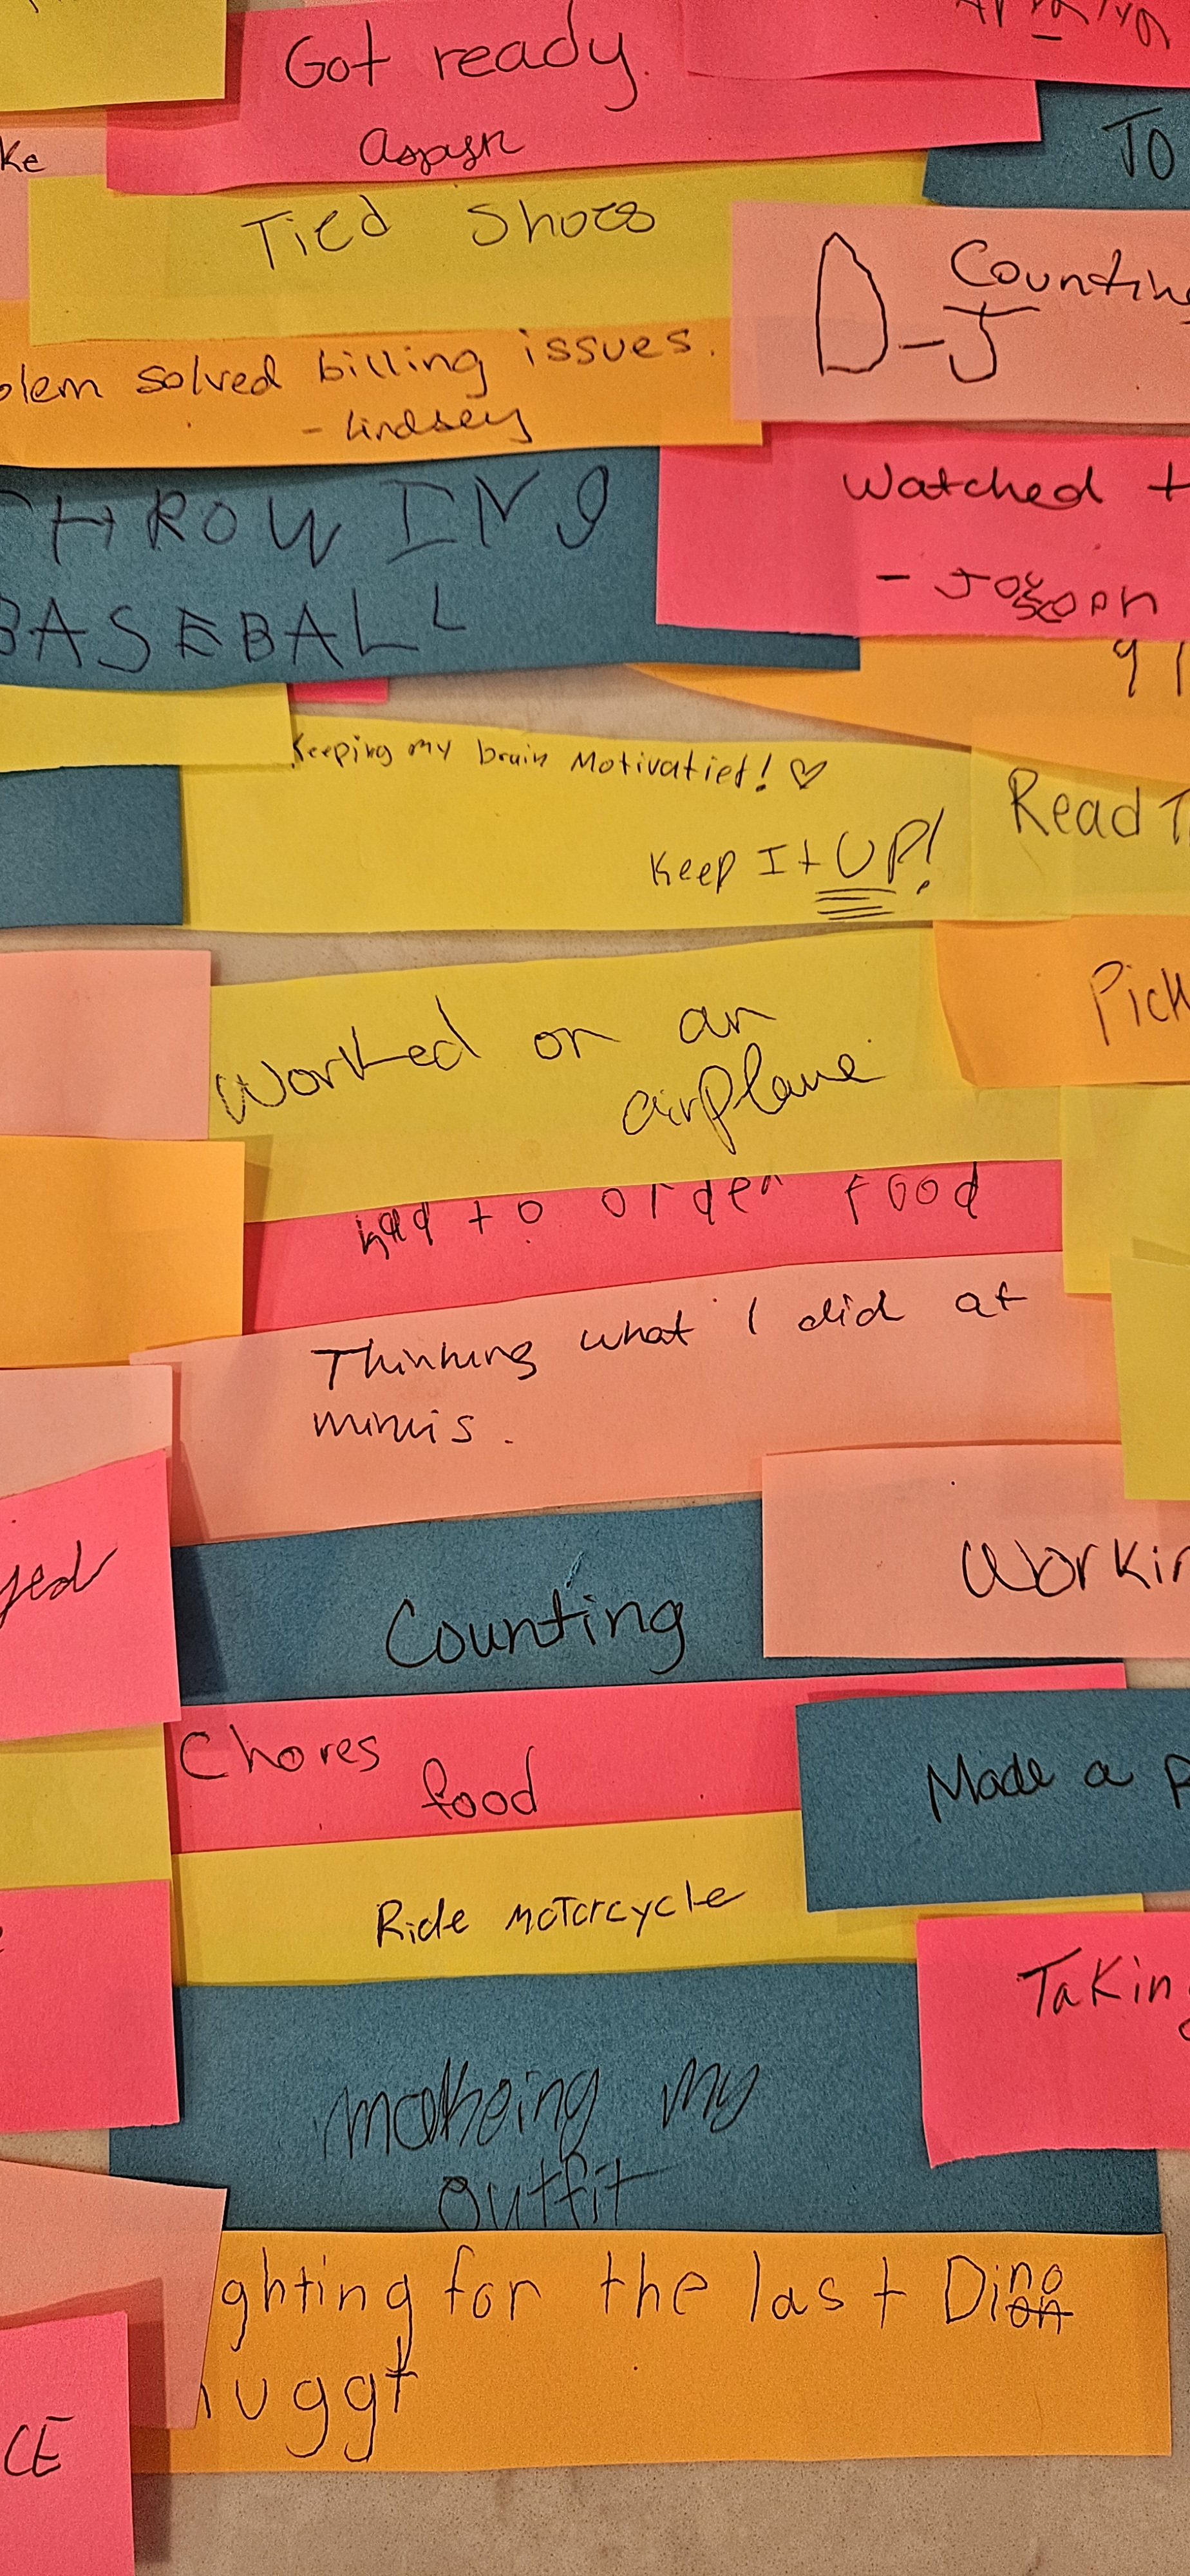 Got ready.
Aspyn
TO
ke
Tied Shoes
Counting
D-J
olem solved billing issues.
- Lindsey
THROWING
BASEBALL
Watched t
- Joseph
Keeping my brain Motivatiet! ♡
Keep It UP!
Read T
Worked on an
airplane
Pick
had to order food
Thinking what I did at
mimis.
Workin
yed
Counting
Chores
food
Made a p
Ride motorcycle
Taking
my
outfit
ghting for the last Dino
nuggt
CE